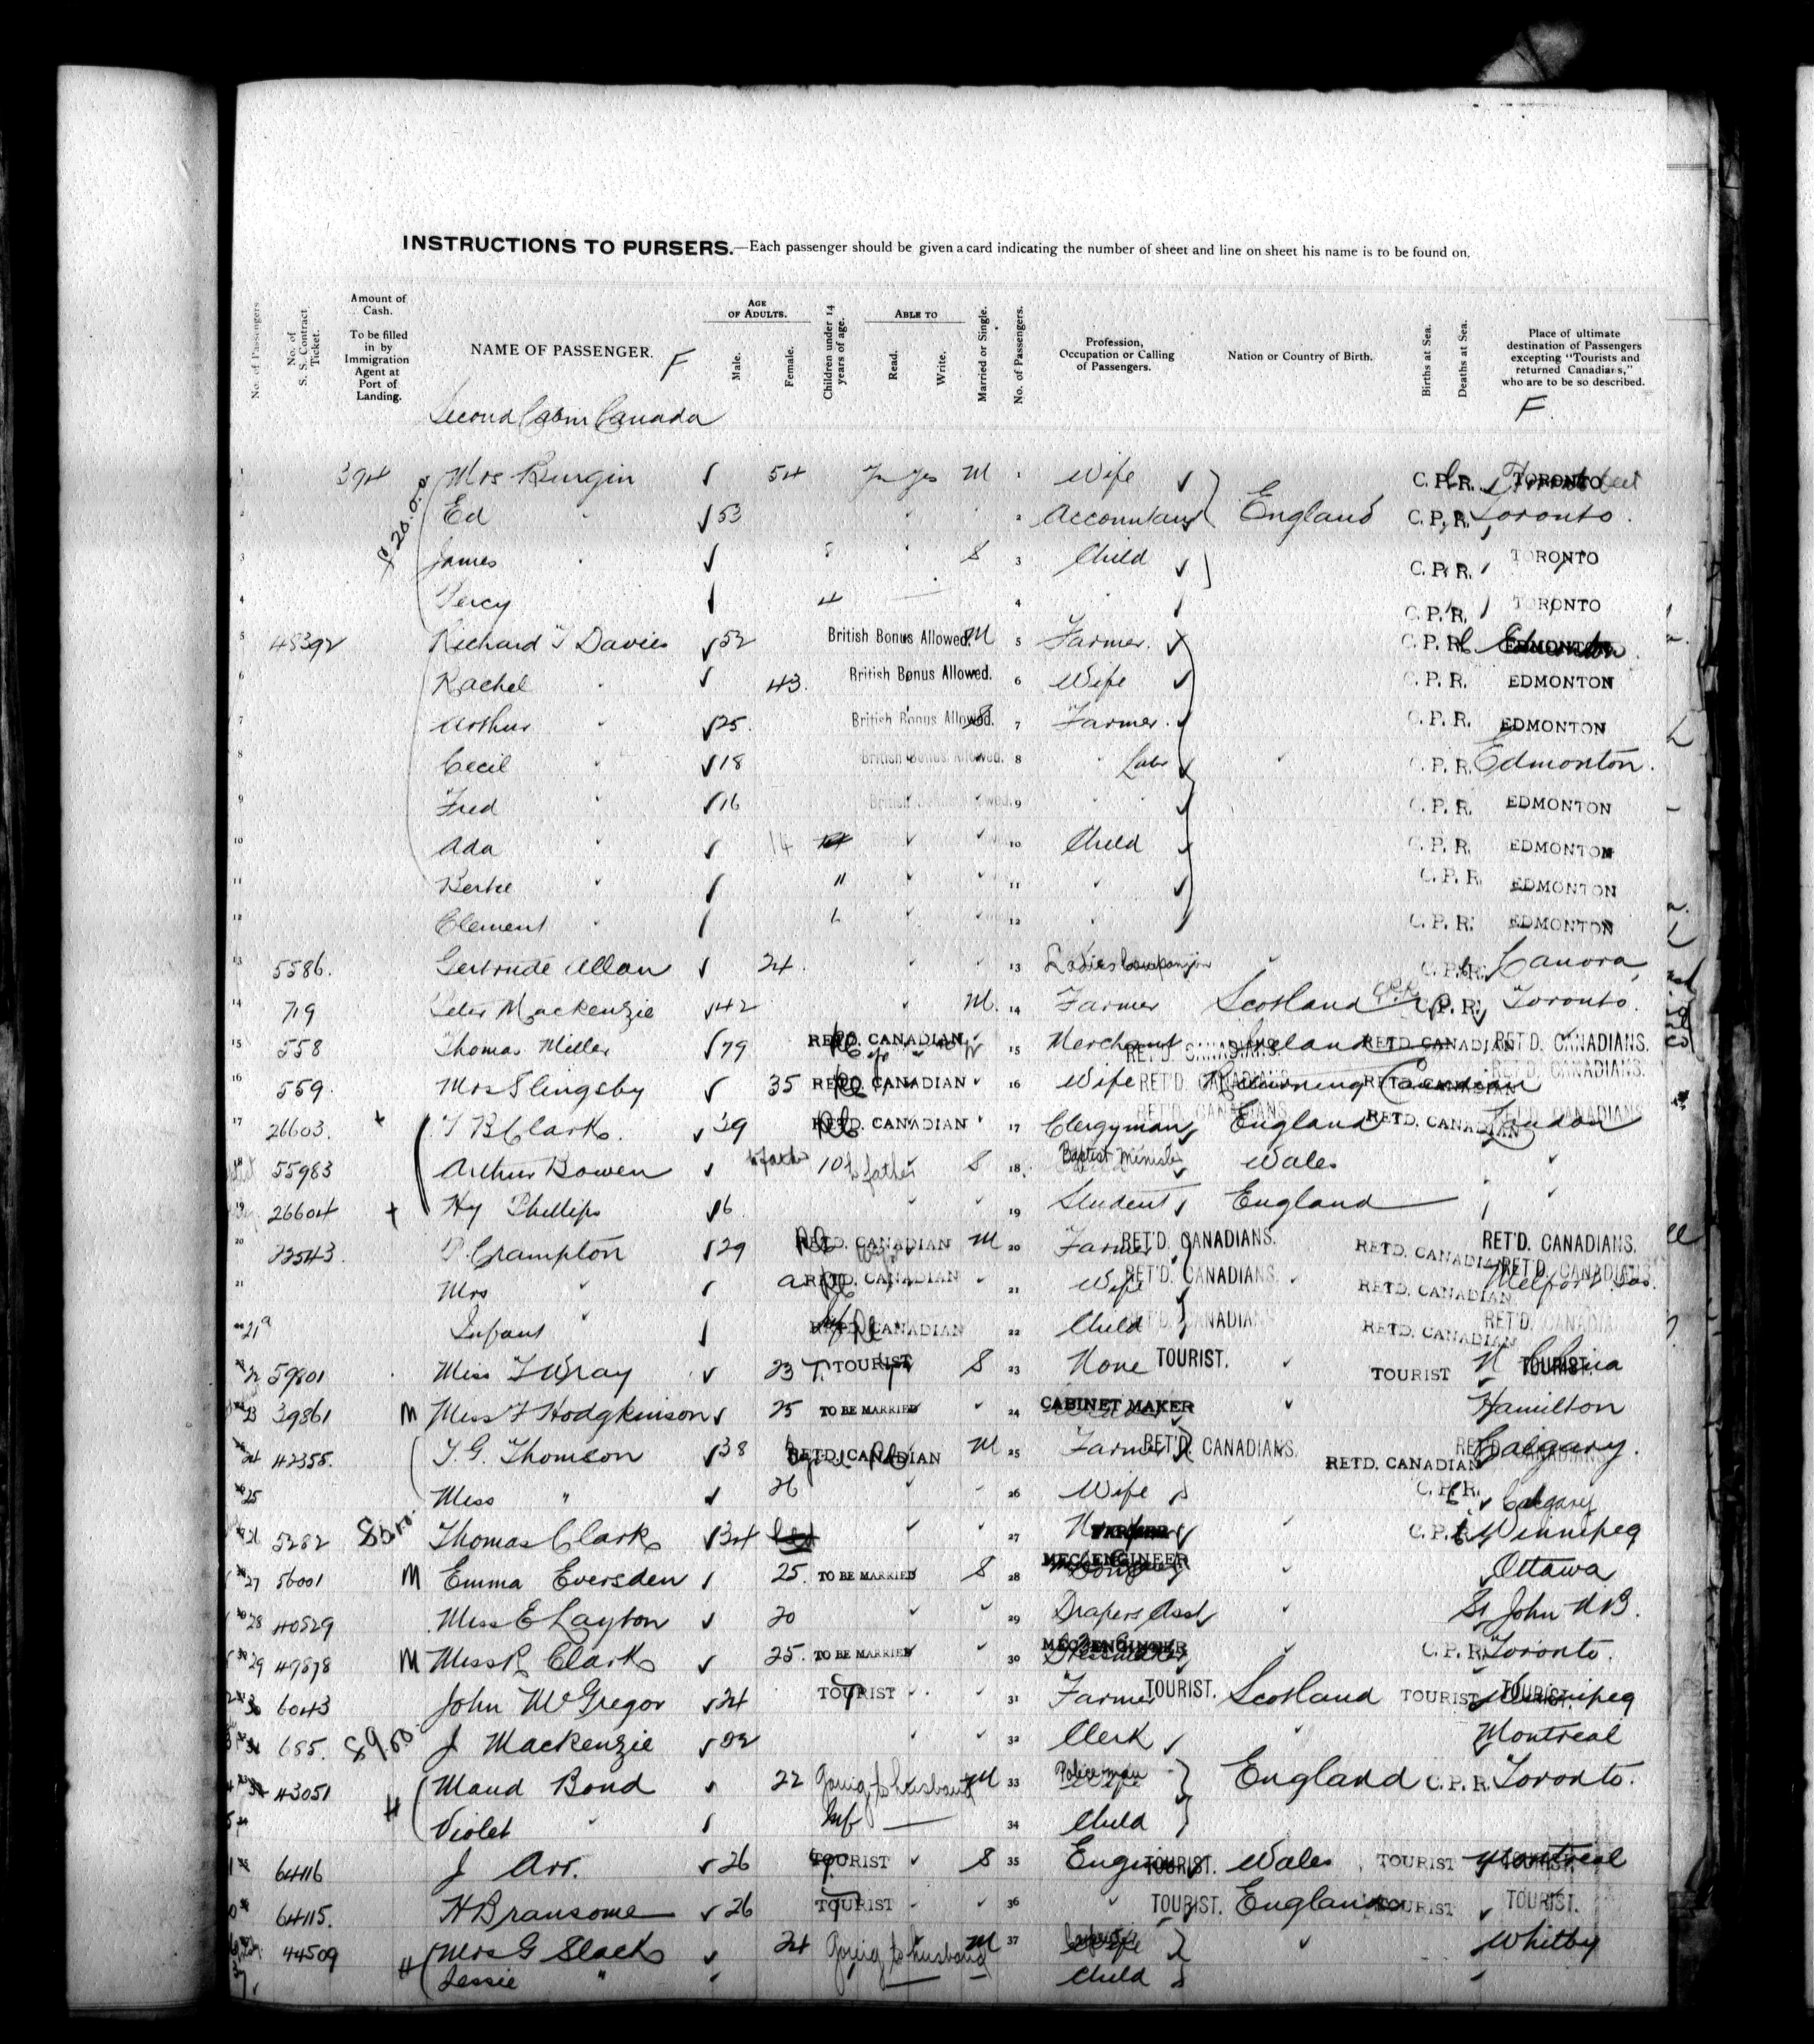 INSTRUCTIONS TO PURSERS.—Each passenger should be given a card indicating the number of sheet and line on sheet his name is to be found on.
No. of Passengers
No. of S. S. Contract Ticket.
Amount of Cash. To be filled in by Immigration Agent at Port of Landing.
NAME OF PASSENGER. F
AGE OF ADULTS. Male. Female.
Children under 14 years of age.
ABLE TO Read. Write.
Married or Single.
No. of Passengers.
Profession, Occupation or Calling of Passengers.
Nation or Country of Birth.
Births at Sea.
Deaths at Sea.
Place of ultimate destination of Passengers excepting "Tourists and returned Canadians," who are to be so described.
F.
Second Cabin Canada
1 394 Mrs Burgin 54 Yes M 1 Wife C. P. R. TORONTO
2 Ed " 53 2 Accountant England C. P. R. Toronto.
3 James " 8 S 3 Child C. P. R. TORONTO
4 Percy 4 4 C. P. R. TORONTO
5 45392 Richard T Davies 52 British Bonus Allowed. M 5 Farmer. C. P. R. EDMONTON
6 Rachel " 43. British Bonus Allowed. 6 Wife C. P. R. EDMONTON
7 Arthur " 25. British Bonus Allowed. S 7 Farmer. C. P. R. EDMONTON
8 Cecil " 18 British Bonus Allowed. 8 " C. P. R. Edmonton.
9 Fred " 16 British Bonus Allowed. 9 " C. P. R. EDMONTON
10 Ada " 14 10 Child C. P. R. EDMONTON
11 11 11 " C. P. R. EDMONTON
12 Clement " 12 " C. P. R. EDMONTON
13 5586. Gertrude Allan 24. 13 Ladies Companion C. P. R. Canora
14 719 Peter Mackenzie 42 M. 14 Farmer Scotland C. P. R. Toronto.
15 558 Thomas Miller 79 RETD. CANADIAN 15 Merchant RET'D. CANADIANS. Ireland RETD. CANADIAN RET'D. CANADIANS.
16 559. Mrs Slingsby 35 RETD. CANADIAN 16 Wife RET'D. CANADIANS. Returning Canadian RETD. CANADIAN RET'D. CANADIANS.
17 26603. T B Clark. 39 RETD. CANADIAN 17 Clergyman England RETD. CANADIAN London
18 55983 Arthur Bowen to father 10 to father S 18. Baptist Minister Wales
19 26604 Hy Phillips 19 Student England
20 P. Crampton 29 RETD. CANADIAN M 20 Farmer RET'D. CANADIANS. RETD. CANADIAN RET'D. CANADIANS.
21 Mrs " RETD. CANADIAN 21 Wife RET'D. CANADIANS. RETD. CANADIAN Melfort Sas.
21a Infant " Inf RETD. CANADIAN 22 Child RET'D. CANADIANS. RETD. CANADIAN
22 59801 Miss 23 T. TOURIST S 23 None TOURIST. TOURIST TOURIST.
23 39861 M Miss F Hodgkinson 25 TO BE MARRIED 24 CABINET MAKER Hamilton
24 42355. T. G. Thomson 38 RETD. CANADIAN M 25 Farmer RET'D. CANADIANS. RETD. CANADIAN Calgary.
25 Miss " 26 26 Wife C. P. R. Calgary
26 5282 Thomas Clark 34 27 FARMER C. P. R. Winnipeg
27 56001 M Emma Eversden 25. TO BE MARRIED S 28 MEC. ENGINEER Ottawa
28 40529 Miss E Layton 20 29 Drapers Asst St John N B.
29 M Miss R Clark 25. TO BE MARRIED 30 MEC. ENGINEER C. P. R. Toronto.
30 6043 John McGregor 24 TOURIST 31 Farmer TOURIST. Scotland TOURIST Winnipeg TOURIST.
685. J Mackenzie 22 32 Clerk " Montreal
43051 H Maud Bond 22 Going to husband M 33 Policeman Wife England C. P. R. Toronto.
Violet " Inf — 34 Child
64116 J Arr. 26 TOURIST S 35 Engineer TOURIST. Wales TOURIST Montreal TOURIST.
64115. H Bransome 26 TOURIST 36 " TOURIST. England TOURIST TOURIST.
44509 H Mrs G Slack 24 Going to husband M 37 Wife Whitby
Jessie " — Child